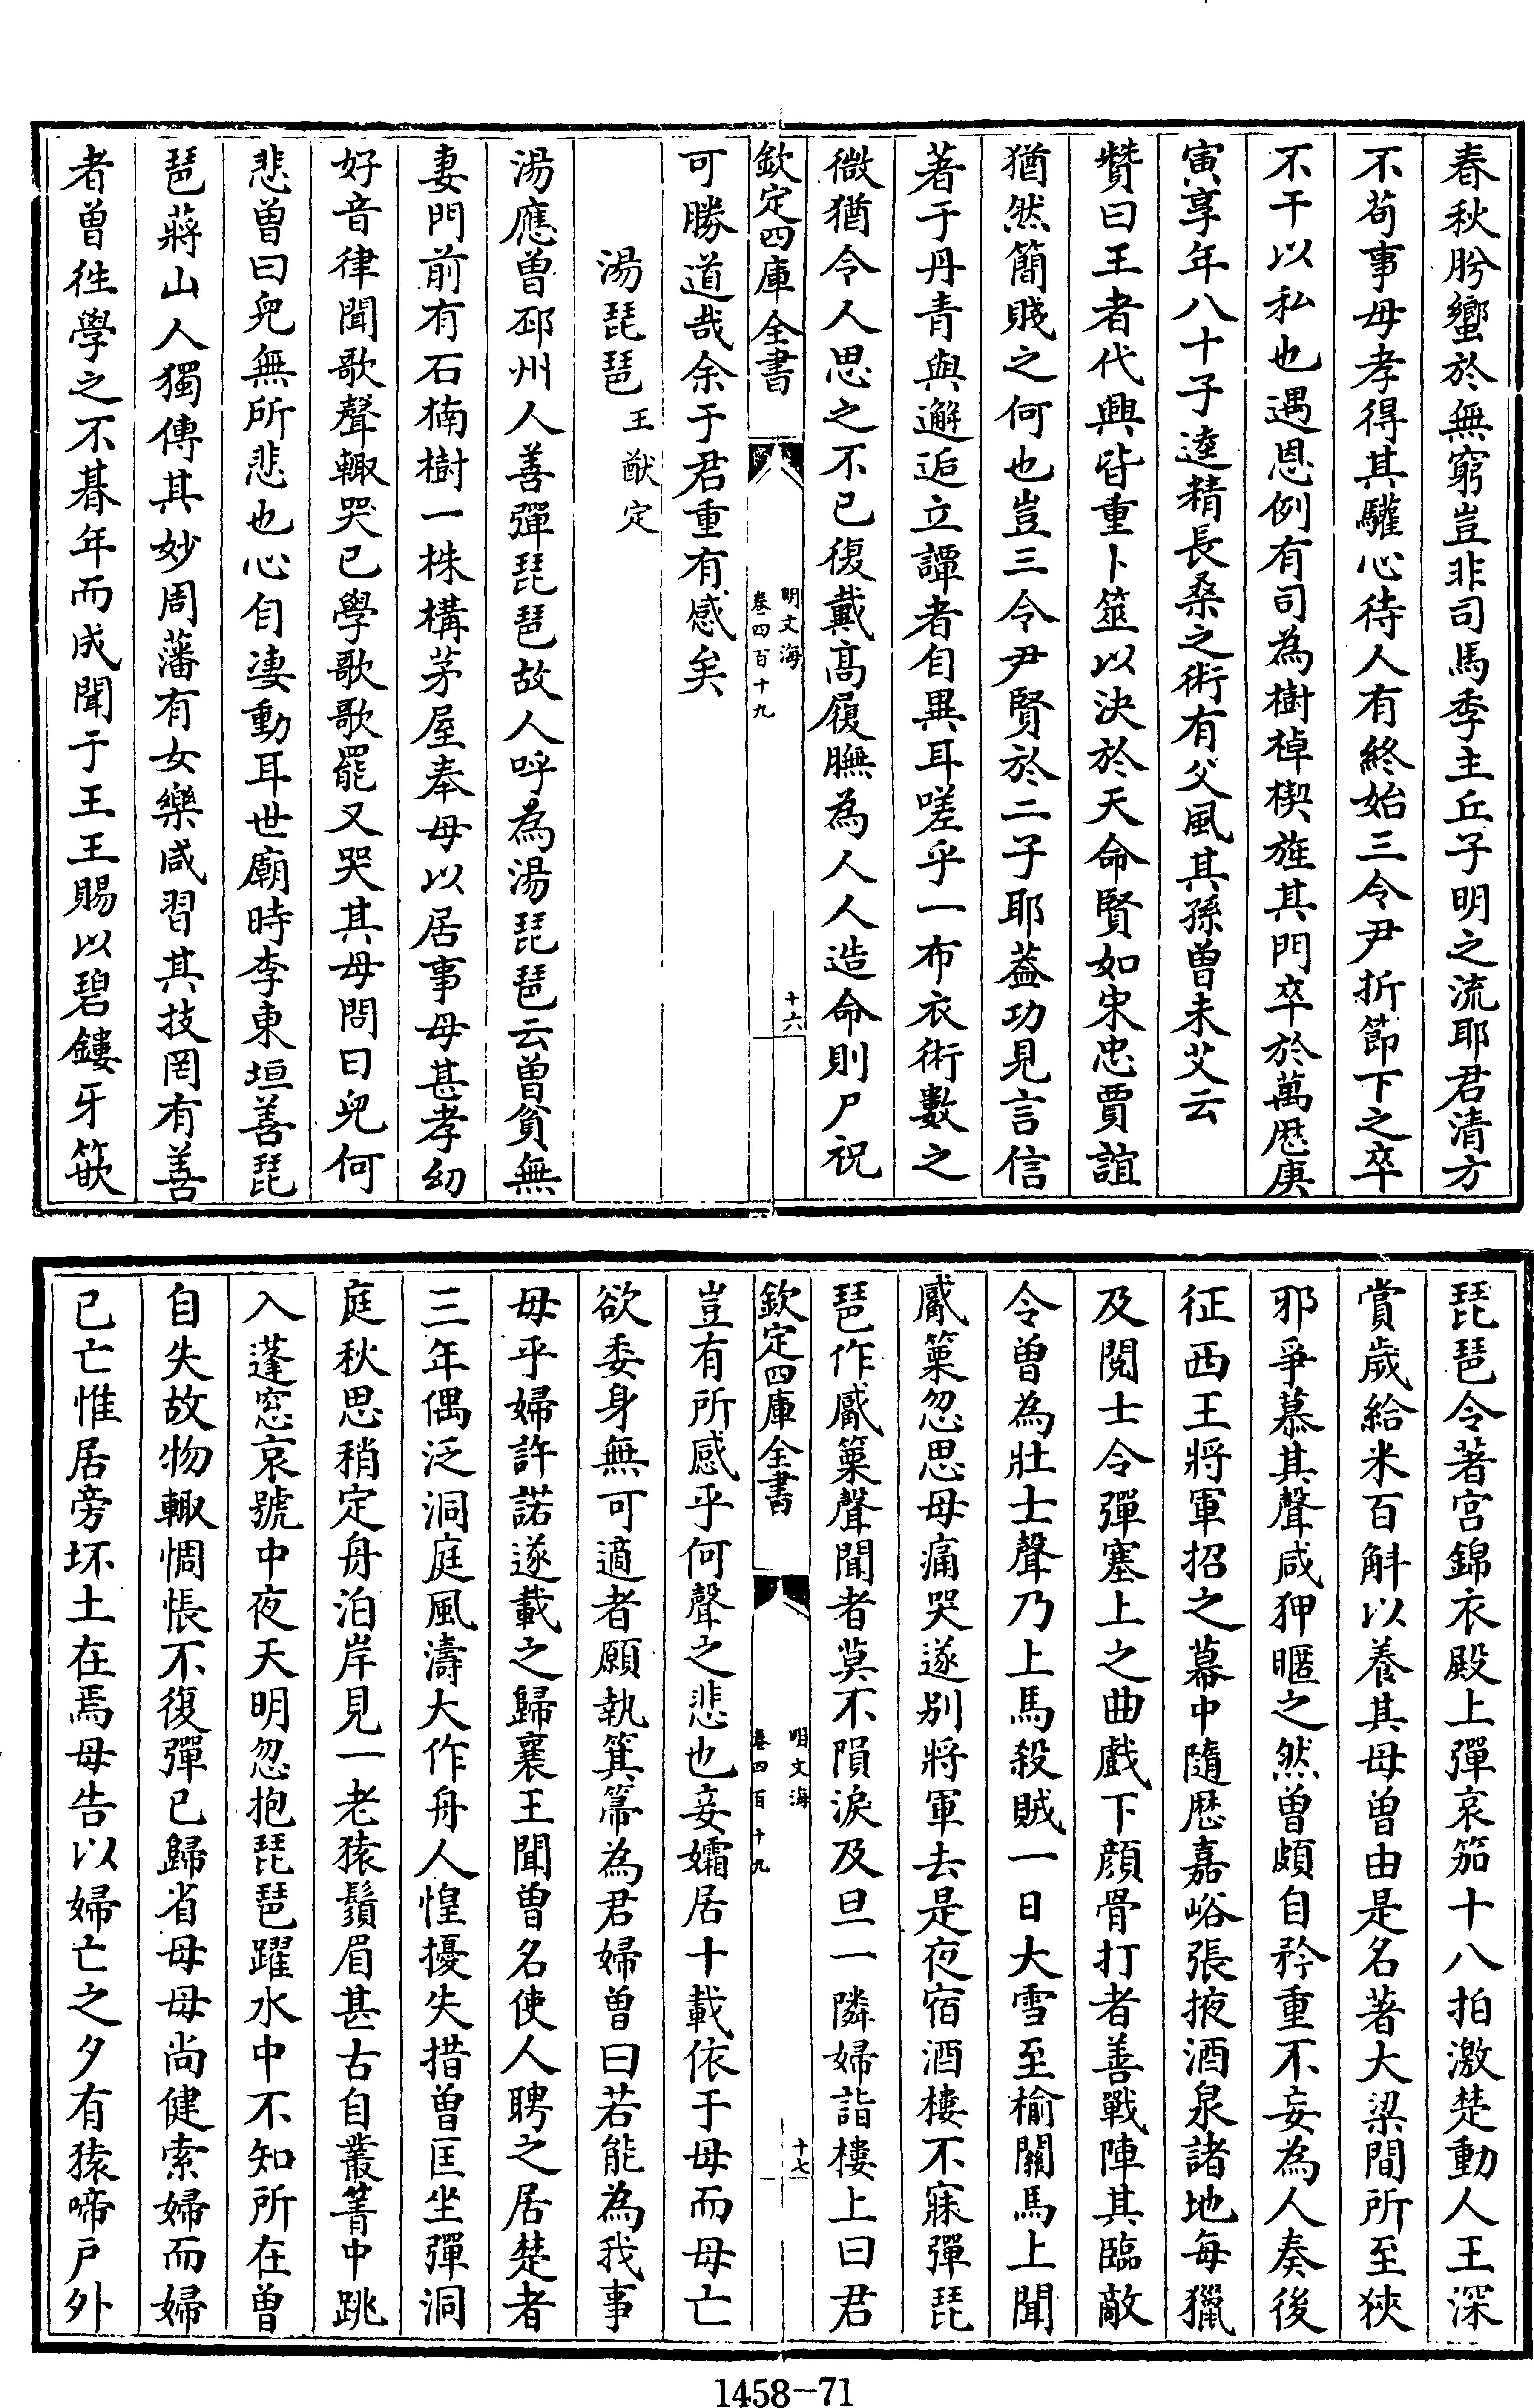 春秋肹蠁於無窮豈非司馬季主丘子明之流耶君清方
不苟事母孝得其驩心待人有終始三令尹折節下之卒
不干以私也遇恩例有司為樹棹楔旌其門卒於萬歴庚
寅享年八十子逵精長桑之術有父風其孫曾未艾云
贊曰王者代興皆重卜筮以決於天命賢如宋忠賈誼
猶然簡賤之何也豈三令尹賢於二子耶葢功見言信
著于丹青與邂逅立譚者自異耳嗟乎一布衣術數之
微猶令人思之不已復戴高履膴為人人造命則尸祝
欽定四庫全書
明文海
卷四百十九
十六
可勝道哉余于君重有感矣
湯琵琶王猷定
湯應曾邳州人善彈琵琶故人呼為湯琵琶云曾貧無
妻門前有石楠樹一株構茅屋奉母以居事母甚孝幼
好音律聞歌聲輙哭已學歌歌罷又哭其母問曰兒何
悲曾曰兒無所悲也心自凄動耳世廟時李東垣善琵
琶蔣山人獨傳其妙周藩有女樂咸習其技罔有善
者曾徃學之不朞年而成聞于王王賜以碧鏤牙篏
琵琶令著宮錦衣殿上彈哀笳十八拍激楚動人王深
賞歲給米百斛以養其母曾由是名著大梁間所至狹
邪爭慕其聲咸狎暱之然曾頗自矜重不妄為人奏後
征西王將軍招之幕中隨歴嘉峪張掖酒泉諸地每獵
及閱士令彈塞上之曲戲下顔骨打者善戰陣其臨敵
令曾為壯士聲乃上馬殺賊一日大雪至榆關馬上聞
觱篥忽思母痛哭遂别將軍去是夜宿酒樓不寐彈琵
琶作觱篥聲聞者莫不隕淚及旦一隣婦詣樓上曰君
欽定四庫全書
明文海
卷四百十九
十七
豈有所感乎何聲之悲也妾孀居十載依于母而母亡
欲委身無可適者願執箕箒為君婦曾曰若能為我事
母乎婦許諾遂載之歸襄王聞曾名使人聘之居楚者
三年偶泛洞庭風濤大作舟人惶擾失措曾匡坐彈洞
庭秋思稍定舟泊岸見一老猿鬚眉甚古自叢箐中跳
入蓬窓哀號中夜天明忽抱琵琶躍水中不知所在曾
自失故物輙惆悵不復彈已歸省母母尚健索婦而婦
已亡惟居旁坏土在焉母告以婦亡之夕有猿啼户外
1458—71